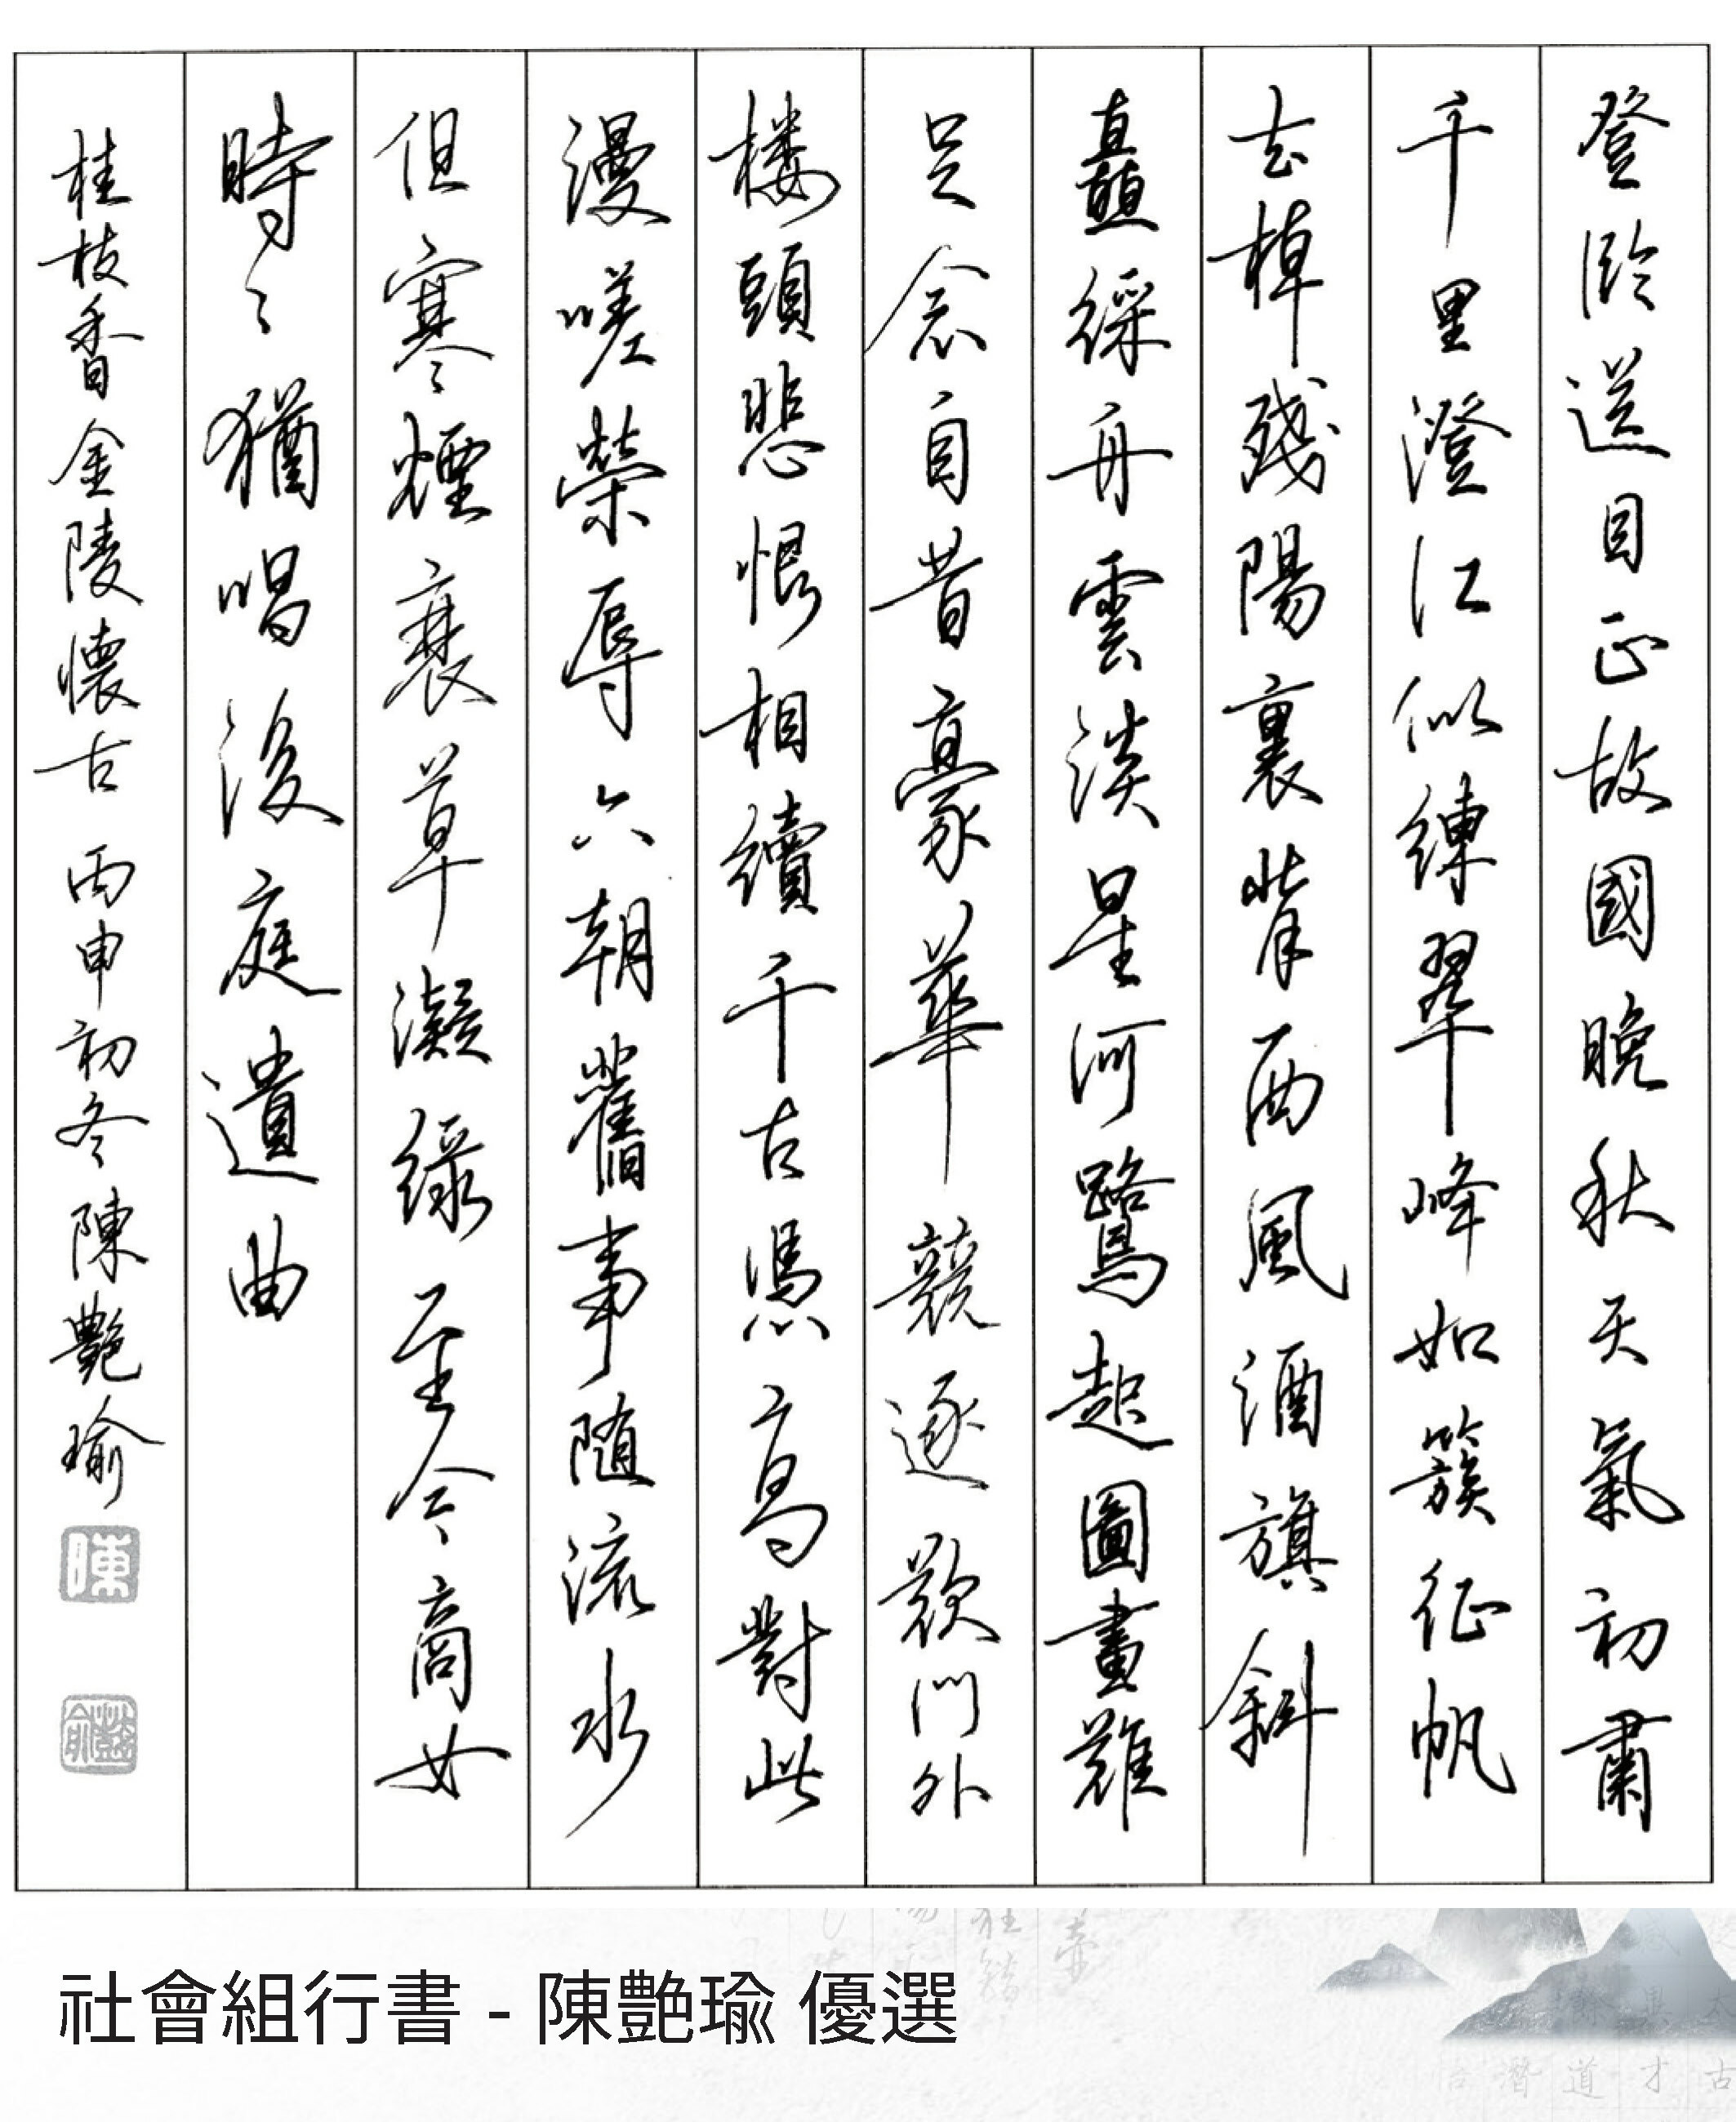 登臨送目正故國晚秋天氣初肅
千里澄江似練翠峰如簇征帆
去棹殘陽裏背西風酒旗斜
矗綵舟雲淡星河鷺起圖畫難
足念自昔豪華競逐歎門外
樓頭悲恨相續千古憑高對此
漫嗟榮辱六朝舊事隨流水
但寒煙衰草凝綠至今商女
時〻猶唱後庭遺曲
桂枝香金陵懷古 丙申初冬陳艷瑜
陳
社會組行書 - 陳艷瑜 優選